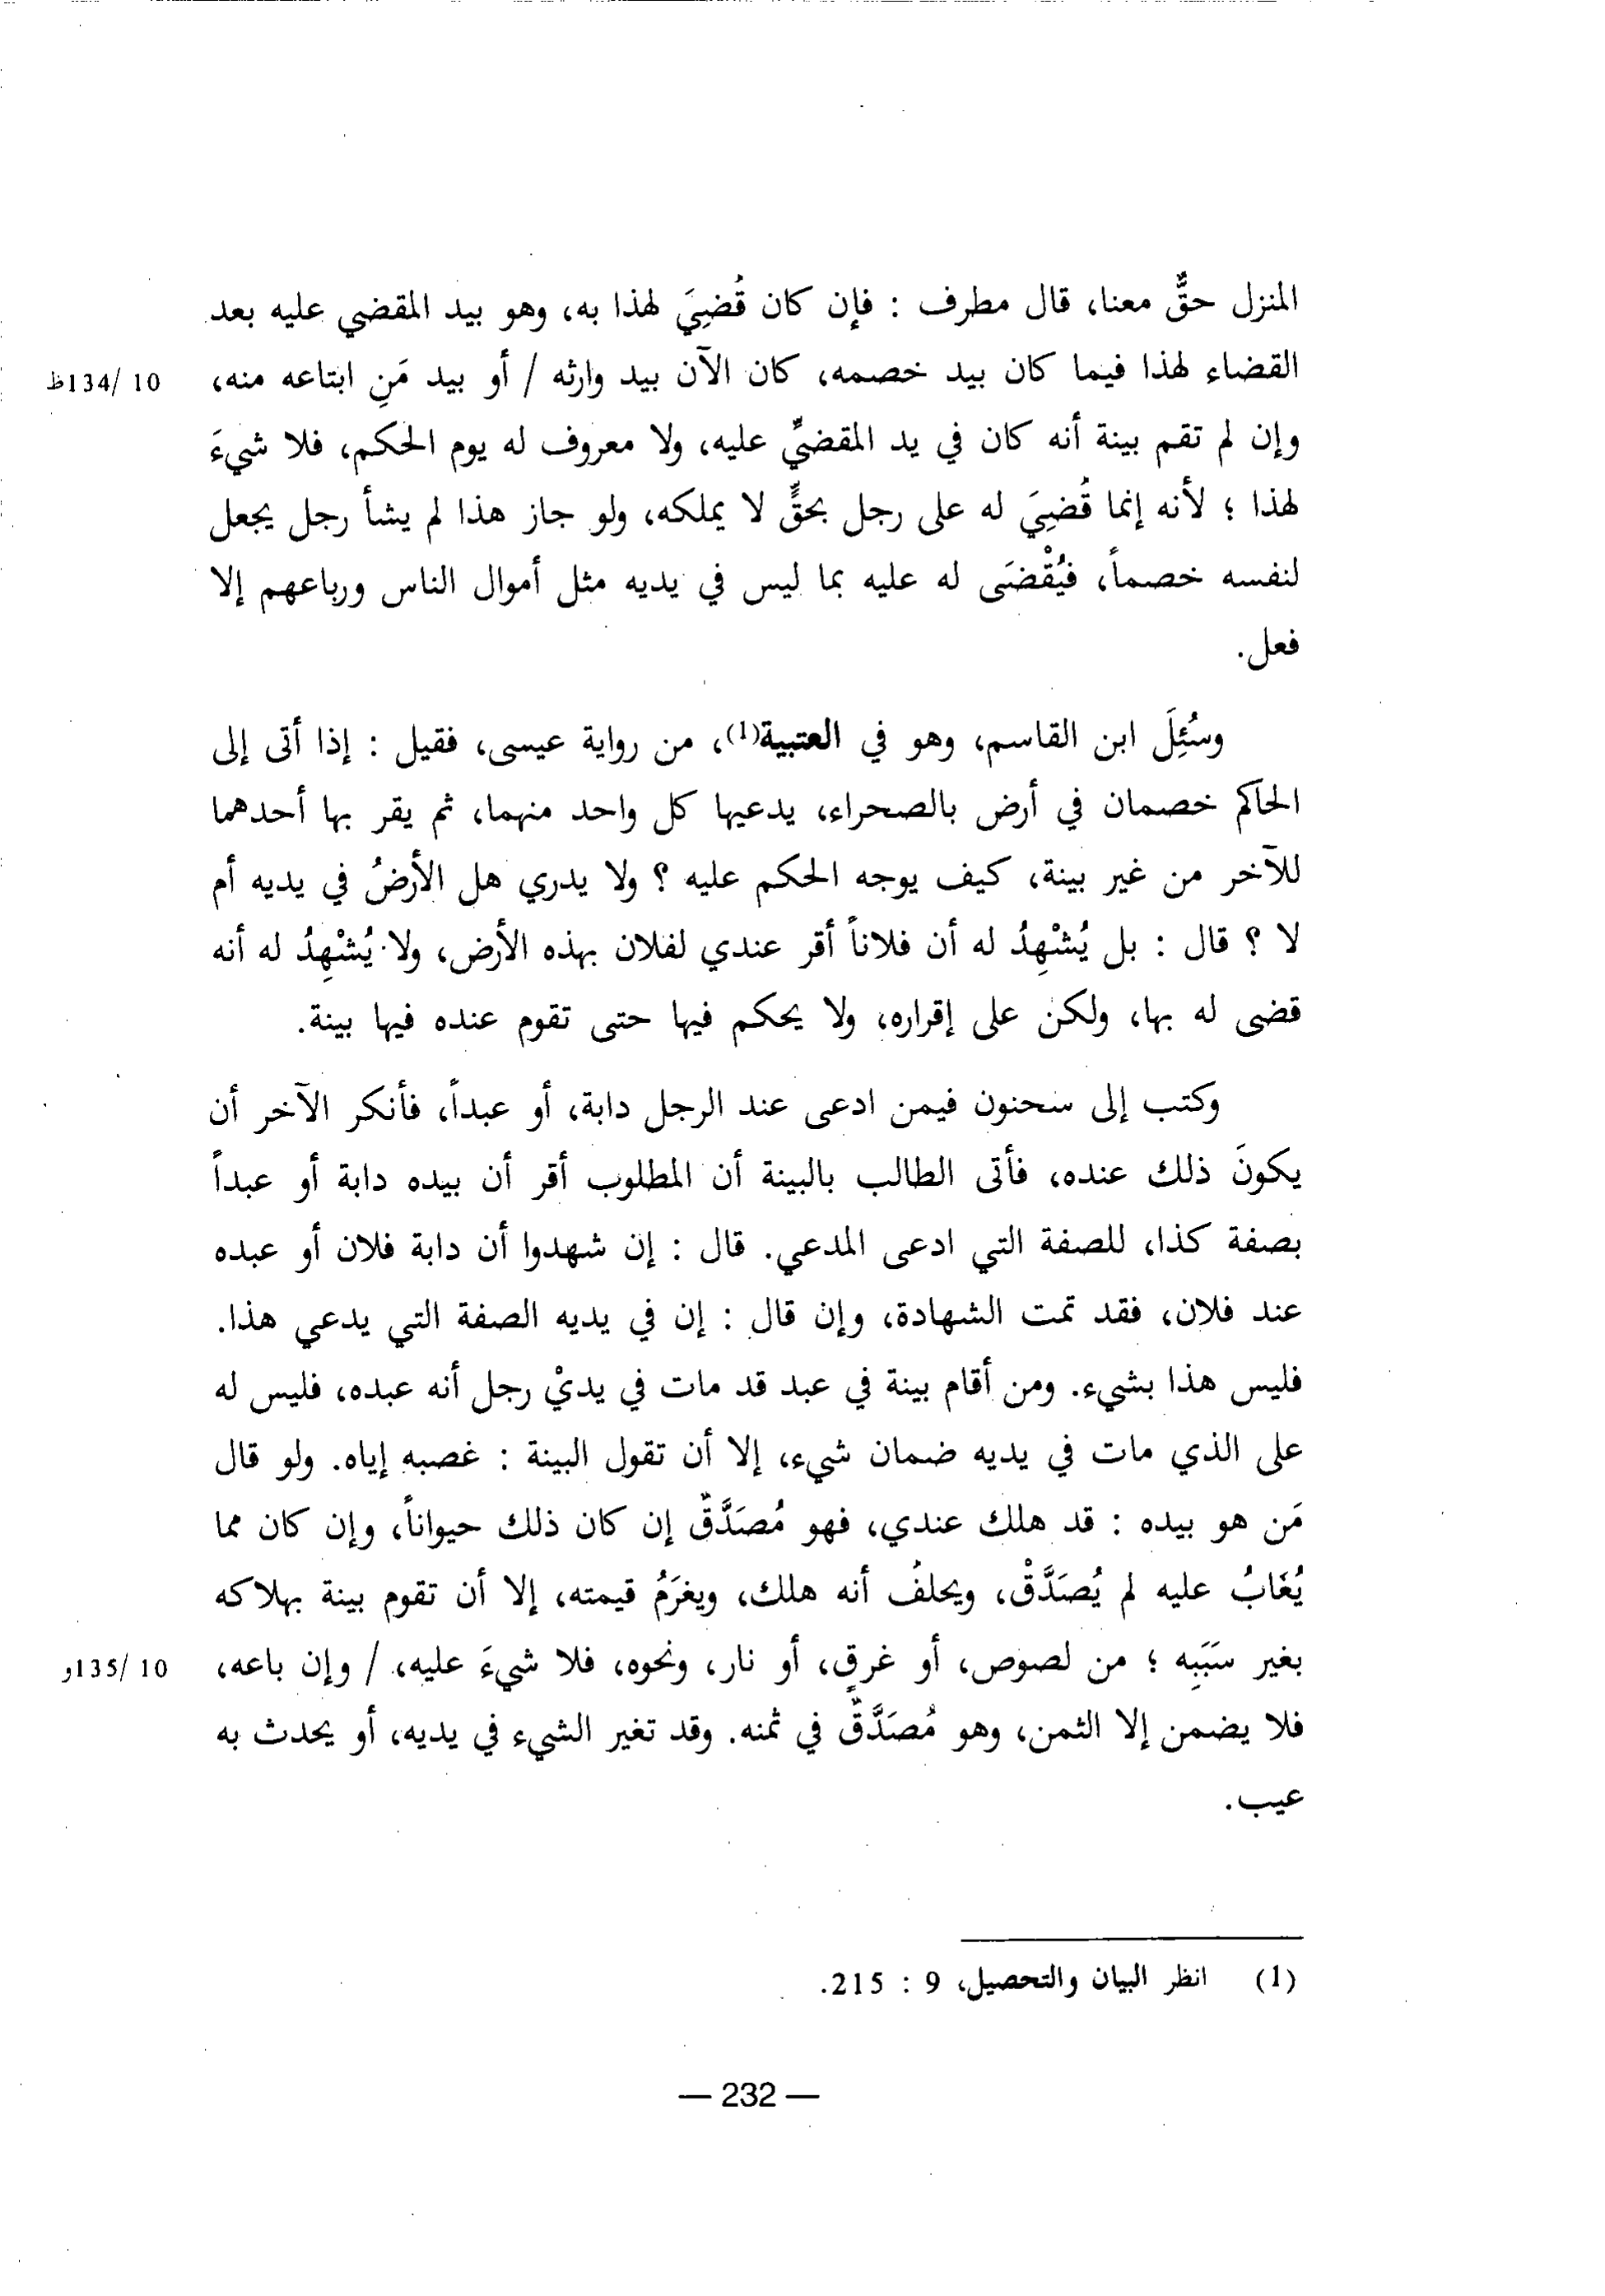 المنزل حقٌّ معنا، قال مطرف : فإن كان قُضِيَ لهذا به، وهو بيد المقضي عليه بعد
القضاء لهذا فيما كان بيد خصمه، كان الآن بيد وارثه / أو بيد مَنِ ابتاعه منه،
10 /134ظ
وإن لم تقم بينة أنه كان في يد المقضيِّ عليه، ولا معروف له يوم الحكم، فلا شيءَ
لهذا ؛ لأنه إنما قُضِيَ له على رجل بحقٍّ لا يملكه، ولو جاز هذا لم يشأ رجل يجعل
لنفسه خصماً، فيُقْضَى له عليه بما ليس في يديه مثل أموال الناس ورباعهم إلا
فعل.
وسُئِلَ ابن القاسم، وهو في العتبية(1)، من رواية عيسى، فقيل : إذا أتى إلى
الحاكم خصمان في أرض بالصحراء، يدعيها كل واحد منهما، ثم يقر بها أحدهما
للآخر من غير بينة، كيف يوجه الحكم عليه ؟ ولا يدري هل الأرضُ في يديه أم
لا ؟ قال : بل يُشْهِدُ له أن فلاناً أقر عندي لفلان بهذه الأرض، ولا يُشْهِدُ له أنه
قضى له بها، ولكن على إقراره، ولا يحكم فيها حتى تقوم عنده فيها بينة.
وكتب إلى سحنون فيمن ادعى عند الرجل دابة، أو عبداً، فأنكر الآخر أن
يكونَ ذلك عنده، فأتى الطالب بالبينة أن المطلوب أقر أن بيده دابة أو عبداً
بصفة كذا، للصفة التي ادعى المدعي. قال : إن شهدوا أن دابة فلان أو عبده
عند فلان، فقد تمت الشهادة، وإن قال : إن في يديه الصفة التي يدعي هذا.
فليس هذا بشيء. ومن أقام بينة في عبد قد مات في يديْ رجل أنه عبده، فليس له
على الذي مات في يديه ضمان شيء، إلا أن تقول البينة : غصبه إياه. ولو قال
مَن هو بيده : قد هلك عندي، فهو مُصَدَّقٌ إن كان ذلك حيواناً، وإن كان مما
يُغَابُ عليه لم يُصَدَّقْ، ويحلفُ أنه هلك، ويغرَمُ قيمته، إلا أن تقوم بينة بهلاكه
بغير سَبَبِه ؛ من لصوص، أو غرقٍ، أو نار، ونحوه، فلا شيءَ عليه، / وإن باعه،
10 /135و
فلا يضمن إلا الثمن، وهو مُصَدَّقٌ في ثمنه. وقد تغير الشيء في يديه، أو يحدث به
عيب.
(1) انظر البيان والتحصيل، 9 : 215.
— 232 —